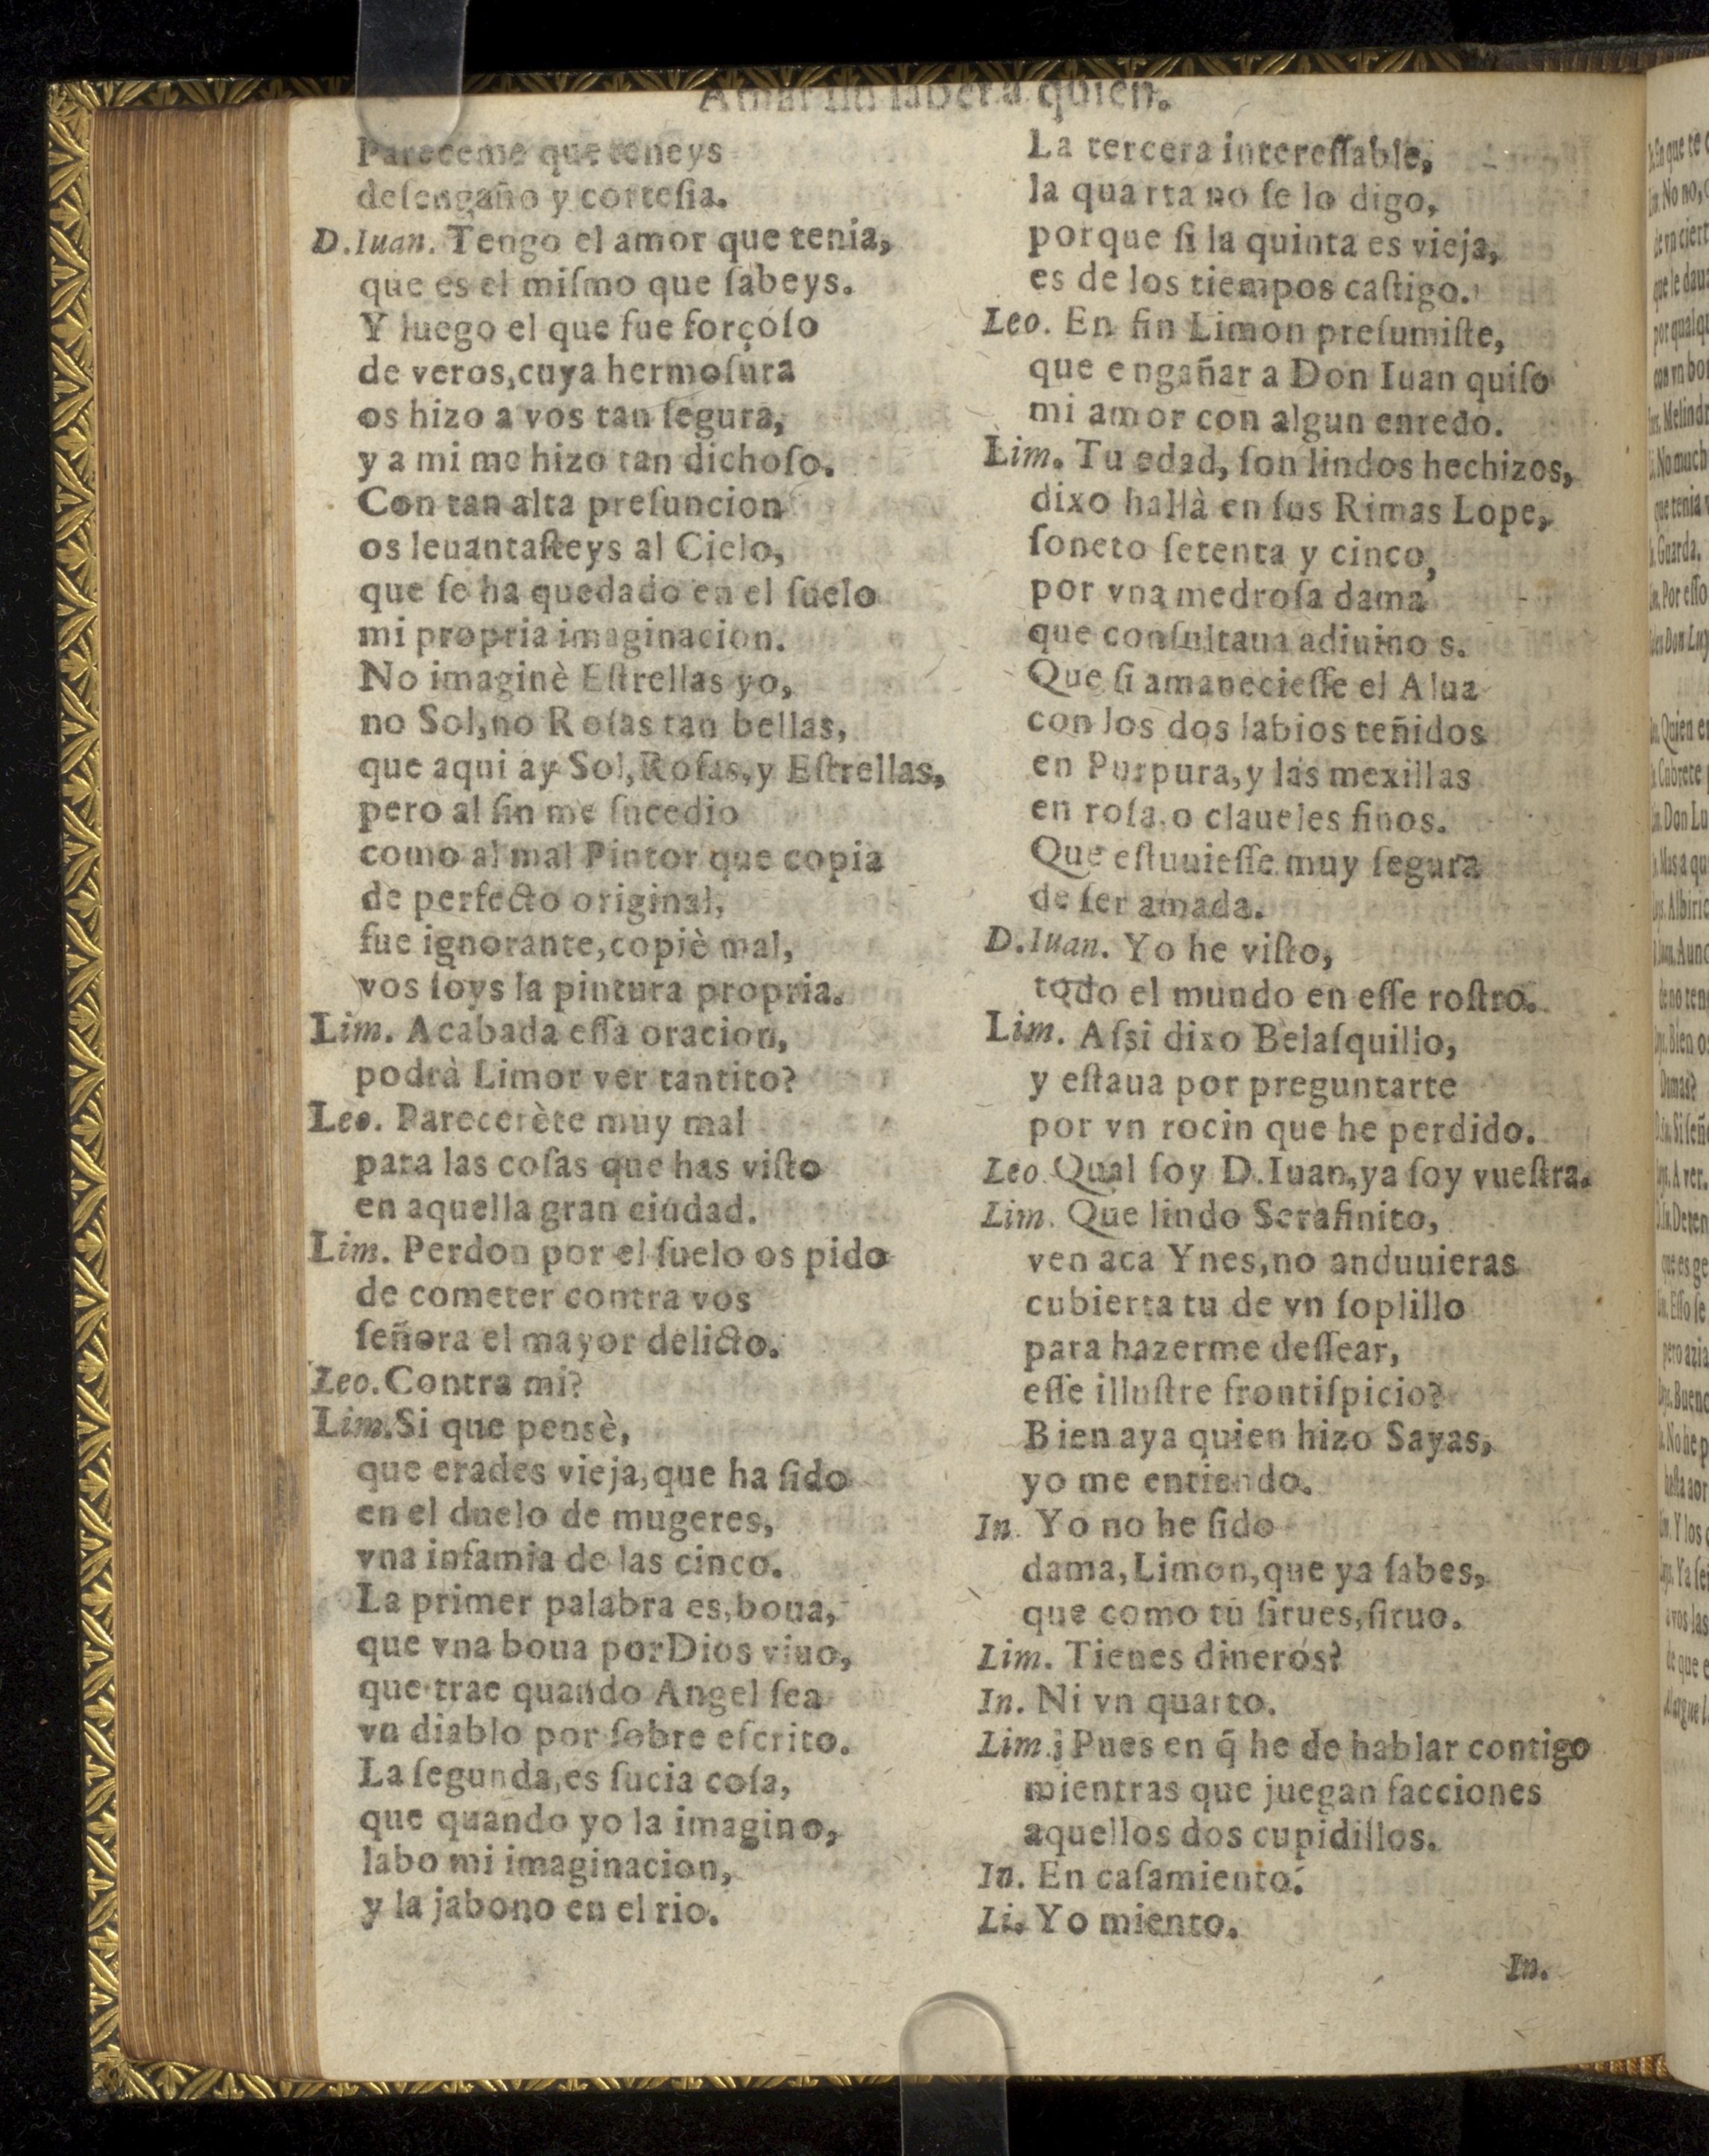 Amar sin saber a quien.
Pareceme que teneys
deſengaño y corteſia.
D.Iuan. Tengo el amor que tenia,
que es el miſmo que ſabeys.
Y luego el que fue forçoſo
de veros,cuya hermoſura
os hizo a vos tan ſegura,
y a mi me hizo tan dichoſo.
Con tan alta preſuncion
os leuantaſteys al Cielo,
que ſe ha quedado en el ſuelo
mi propria imaginacion.
No imaginè Eſtrellas yo,
no Sol,no Roſas tan bellas,
que aqui ay Sol,Roſas,y Eſtrellas,
pero al fin me ſucedio
como al mal Pintor que copia
de perfecto original,
fue ignorante,copiè mal,
vos ſoys la pintura propria.
Lim. Acabada eſſa oracion,
podrà Limor ver tantito?
Leo. Parecerète muy mal
para las coſas que has viſto
en aquella gran ciudad.
Lim. Perdon por el ſuelo os pido
de cometer contra vos
ſeñora el mayor delicto.
Leo.Contra mi?
Lim.Si que pensè,
que erades vieja,que ha ſido
en el duelo de mugeres,
vna infamia de las cinco.
La primer palabra es,boua,
que vna boua porDios viuo,
que trae quando Angel ſea
vn diablo por ſobre eſcrito.
La ſegunda,es ſucia coſa,
que quando yo la imagino,
labo mi imaginacion,
y la jabono en el rio.
La tercera intereſſable,
la quarta no ſe lo digo,
porque ſi la quinta es vieja,
es de los tiempos caſtigo.
Leo. En fin Limon preſumiſte,
que engañar a Don Iuan quiſo
mi amor con algun enredo.
Lim. Tu edad, ſon lindos hechizos,
dixo hallà en ſus Rimas Lope,
ſoneto ſetenta y cinco,
por vna medroſa dama
que conſultaua adiuinos.
Que ſi amanecieſſe el Alua
con los dos labios teñidos
en Purpura,y las mexillas
en roſa,o claueles finos.
Que eſtuuieſſe muy ſegura
de ſer amada.
D.Iuan. Yo he viſto,
todo el mundo en eſſe roſtro.
Lim. Aſsi dixo Belaſquillo,
y eſtaua por preguntarte
por vn rocin que he perdido.
Leo. Qual ſoy D.Iuan,ya ſoy vueſtra.
Lim. Que lindo Serafinito,
ven aca Ynes,no anduuieras
cubierta tu de vn ſoplillo
para hazerme deſſear,
eſſe illuſtre frontiſpicio?
Bien aya quien hizo Sayas,
yo me entiendo.
In. Yo no he ſido
dama,Limon,que ya ſabes,
que como tu ſirues,ſiruo.
Lim. Tienes dineros?
In. Ni vn quarto.
Lim.¡ Pues en q̃ he de hablar contigo
mientras que juegan facciones
aquellos dos cupidillos.
In. En caſamiento.
Li. Yo miento.
In.